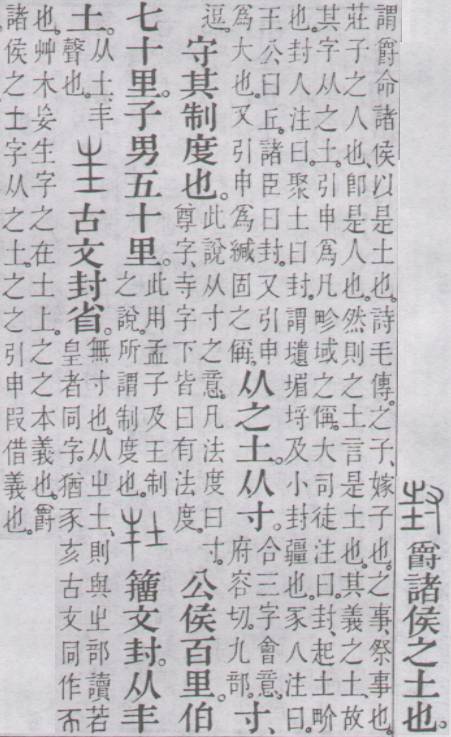 爵諸侯之土也。
謂爵命諸侯以是土也。詩毛傳。之子、嫁子也。之事、祭事也。
莊子之人也、卽是人也。然則之土言是土也。其義之土、故
其字从之土。引申爲凡畛域之偁。大司徒注曰。封、起土畍
也。封人注曰。聚土曰封。謂壝堳埒及小封疆也。冢人注曰。
王公曰丘。諸臣曰封。又引申
爲大也。又引申爲緘固之偁、
从之土。从寸。
合三字會意。
府容切。九部。
寸、
逗。
守其制度也。
此說从寸之意。凡法度曰寸。
尊字、寺字下皆曰有法度。
公侯百里。伯
七十里。子男五十里。
此用孟子及王制
之說。所謂制度也。
籒文封。从丰
土。
从土、丰
聲也。
古文封省。
無寸也。从㞢土、則與㞢部讀若
皇者同字、猶豕亥古文同作
也。艸木妄生字之在土上。之之本義也。爵
諸侯之土字从之土。之之引申叚借義也。